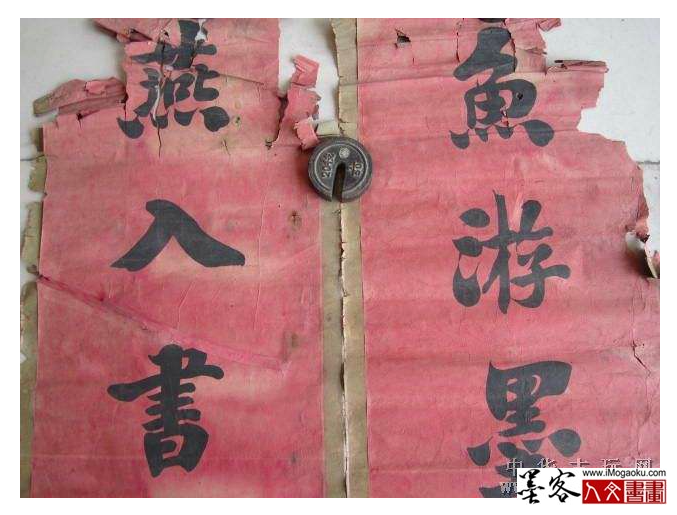 魚游墨
燕入書
中华古玩网
www.iMogaoku.com
墨客人文書畫